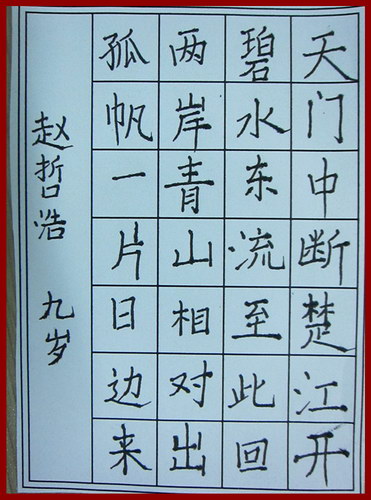 天门中断楚江开
碧水东流至此回
两岸青山相对出
孤帆一片日边来
赵哲浩 九岁